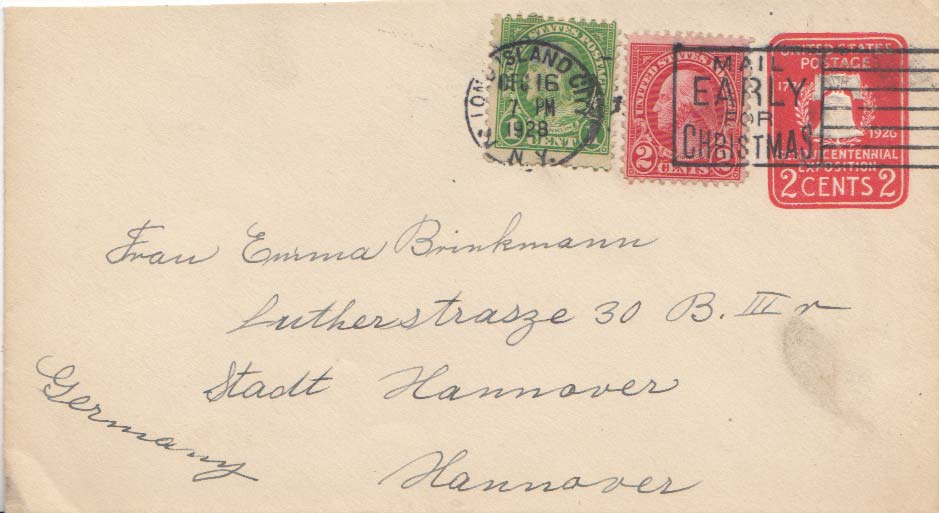 LONG ISLAND CITY
DEC 16
7 PM
1928
N.Y.
MAIL
EARLY
FOR
CHRISTMAS
UNITED STATES POSTAGE
1 CENT 1
UNITED STATES
2 CENTS 2
UNITED STATES
POSTAGE
1926
SESQUICENTENNIAL
EXPOSITION
2 CENTS 2
Frau Emma Brinkmann
Lutherstrasze 30 B. III r
Stadt Hannover
Hannover
Germany